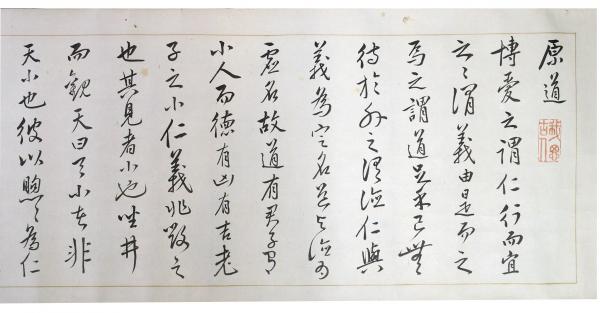 原道
博愛之謂仁行而宜
之々謂義由是而之
焉之謂道足乎己無
待於外之謂德仁與
義為定名道與德為
虛名故道有君子
小人而德有凶有吉老
子之小仁義非毀之
也其見者小也坐井
而觀天曰天小者非
天小也彼以煦々為仁